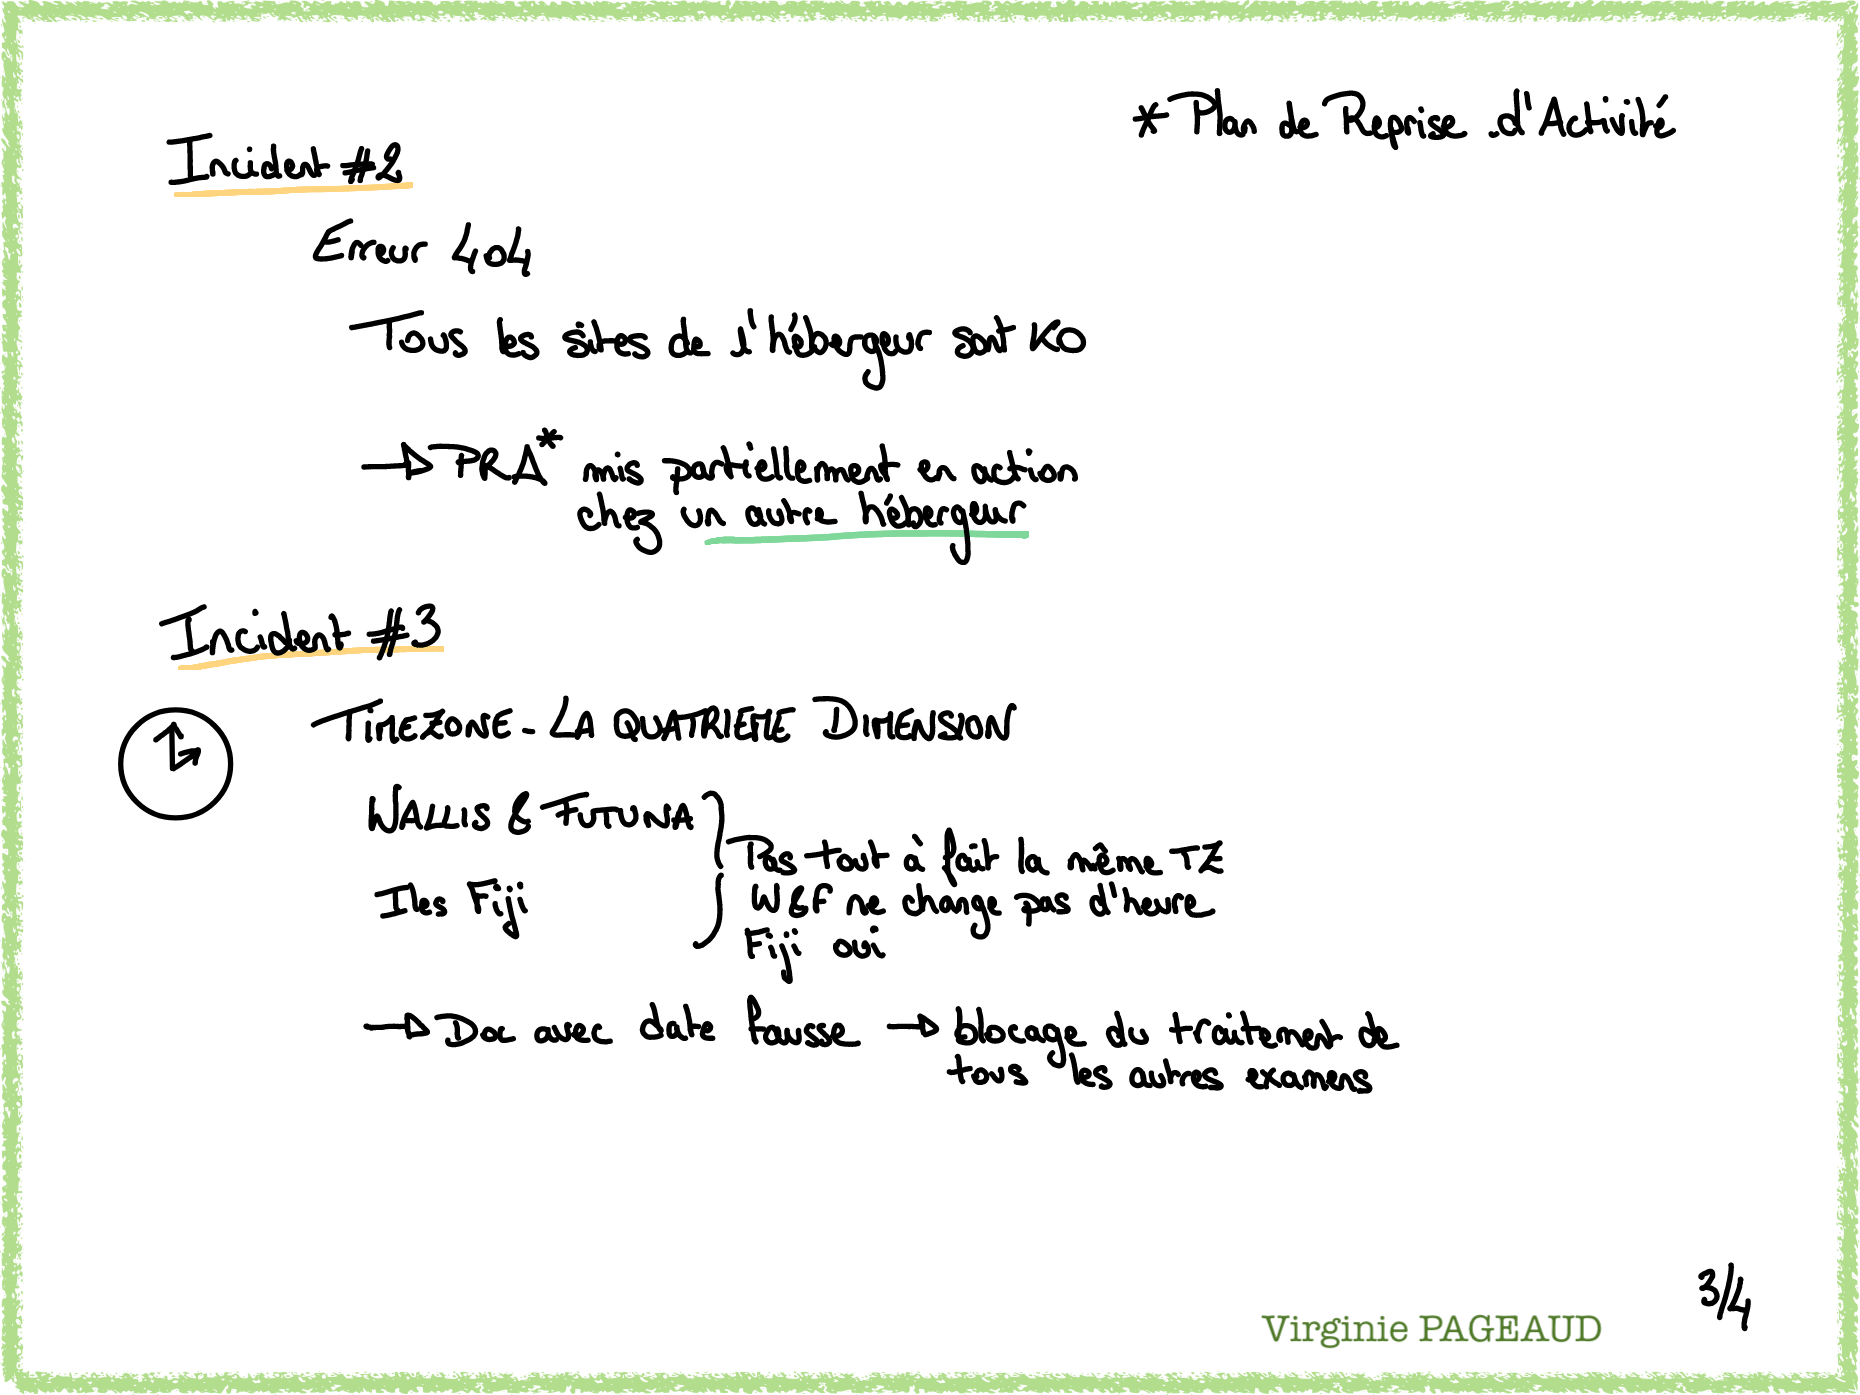 * Plan de Reprise d'Activité
Incident #2
Erreur 404
Tous les sites de l'hébergeur sont KO
→ PRA* mis partiellement en action
chez un autre hébergeur
Incident #3
TIMEZONE - LA QUATRIEME DIMENSION
WALLIS & FUTUNA
Iles Fiji
Pas tout à fait la même TZ
W&F ne change pas d'heure
Fiji oui
→ Doc avec date fausse → blocage du traitement de
tous les autres examens
3/4
Virginie PAGEAUD